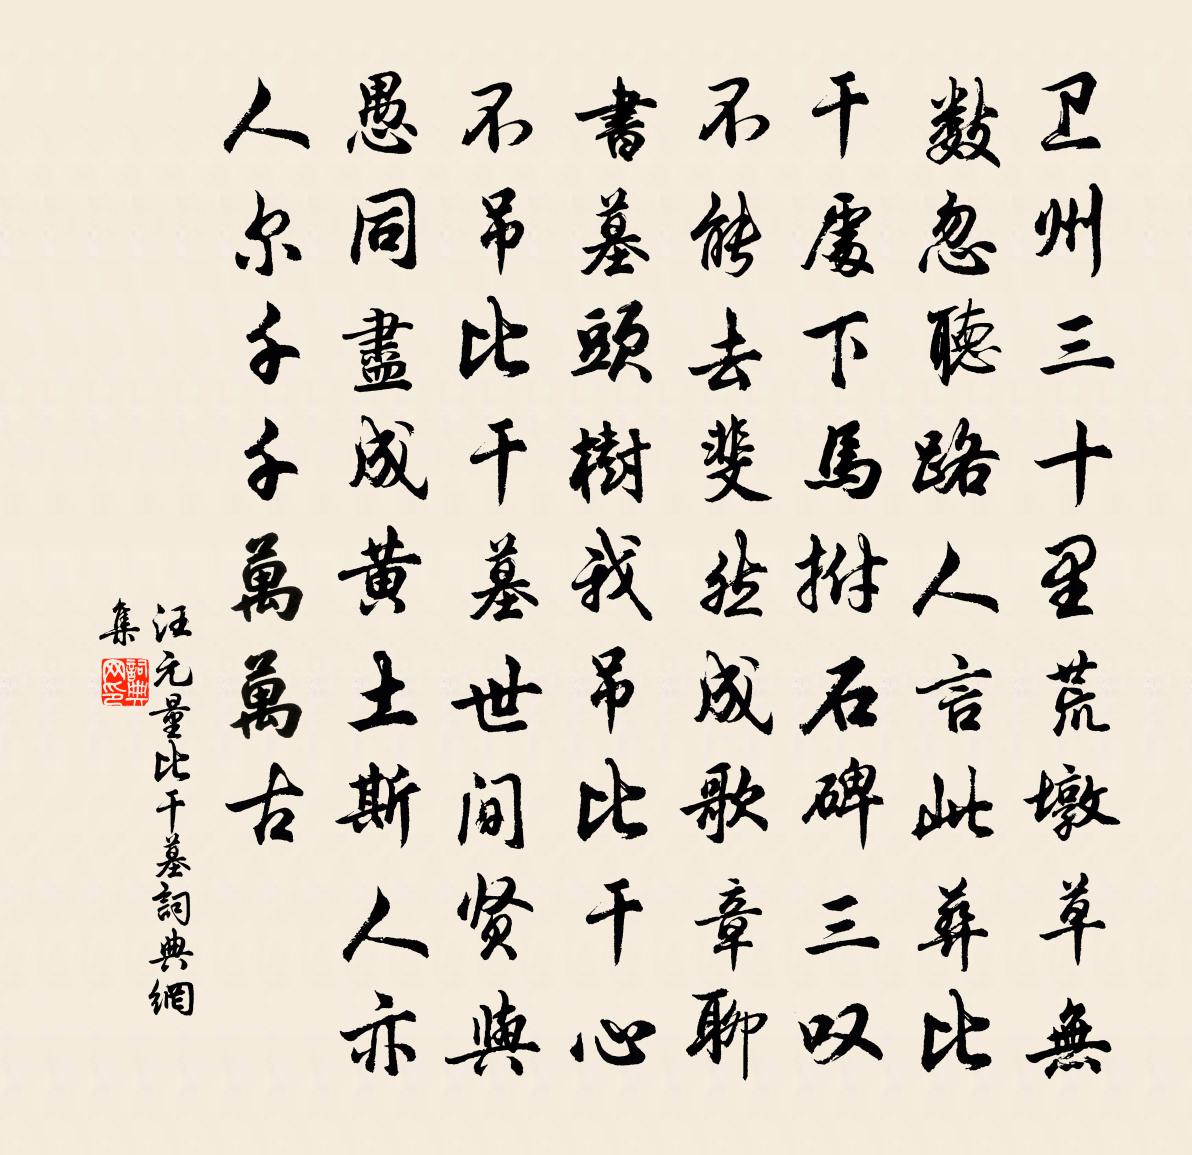 卫州三十里荒墩草無
数忽聽路人言此葬比
干處下馬拊石碑三叹
不能去斐然成歌章聊
書墓頭樹我吊比干心
不吊比干墓世间贤與
愚同盡成黄土斯人亦
人尔千千萬萬古
汪元量比干墓詞典網
集
詞典网印